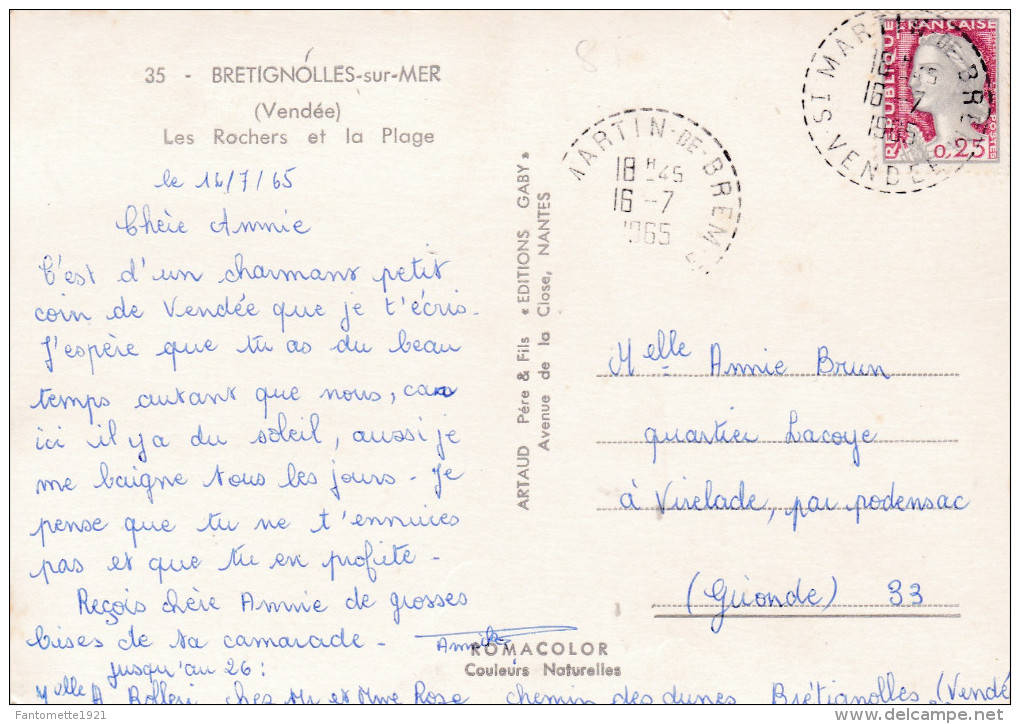 35 - BRETIGNOLLES-sur-MER
(Vendée)
Les Rochers et la Plage
le 14/7/65
Chère Annie
C'est d'un charmant petit
coin de Vendée que je t'écris.
J'espère que tu as du beau
temps autant que nous, car
ici il y a du soleil, aussi je
me baigne tous les jours - Je
pense que tu ne t'ennuies
pas et que tu en profite -
Reçois chère Annie de grosses
bises de ta camarade -
Annick
jusqu'au 26 :
Melle A. Rolleri chez Mr et Mme Rose chemin des dunes Brétignolles (Vendé
ARTAUD Père & Fils « EDITIONS GABY »
Avenue de la Close, NANTES
ROMACOLOR
Couleurs Naturelles
MARTIN-DE-BREM
18 H 45
16 -7
1965
ST MARTIN-DE-BREM
18 H 45
16 -7
1965
VENDEE
REPUBLIQUE FRANÇAISE
POSTES
0,25
Melle Annie Brun
quartier Lacoye
à Virelade, par podensac
(Gironde) 33
© Fantomette1921
http://www.delcampe.net